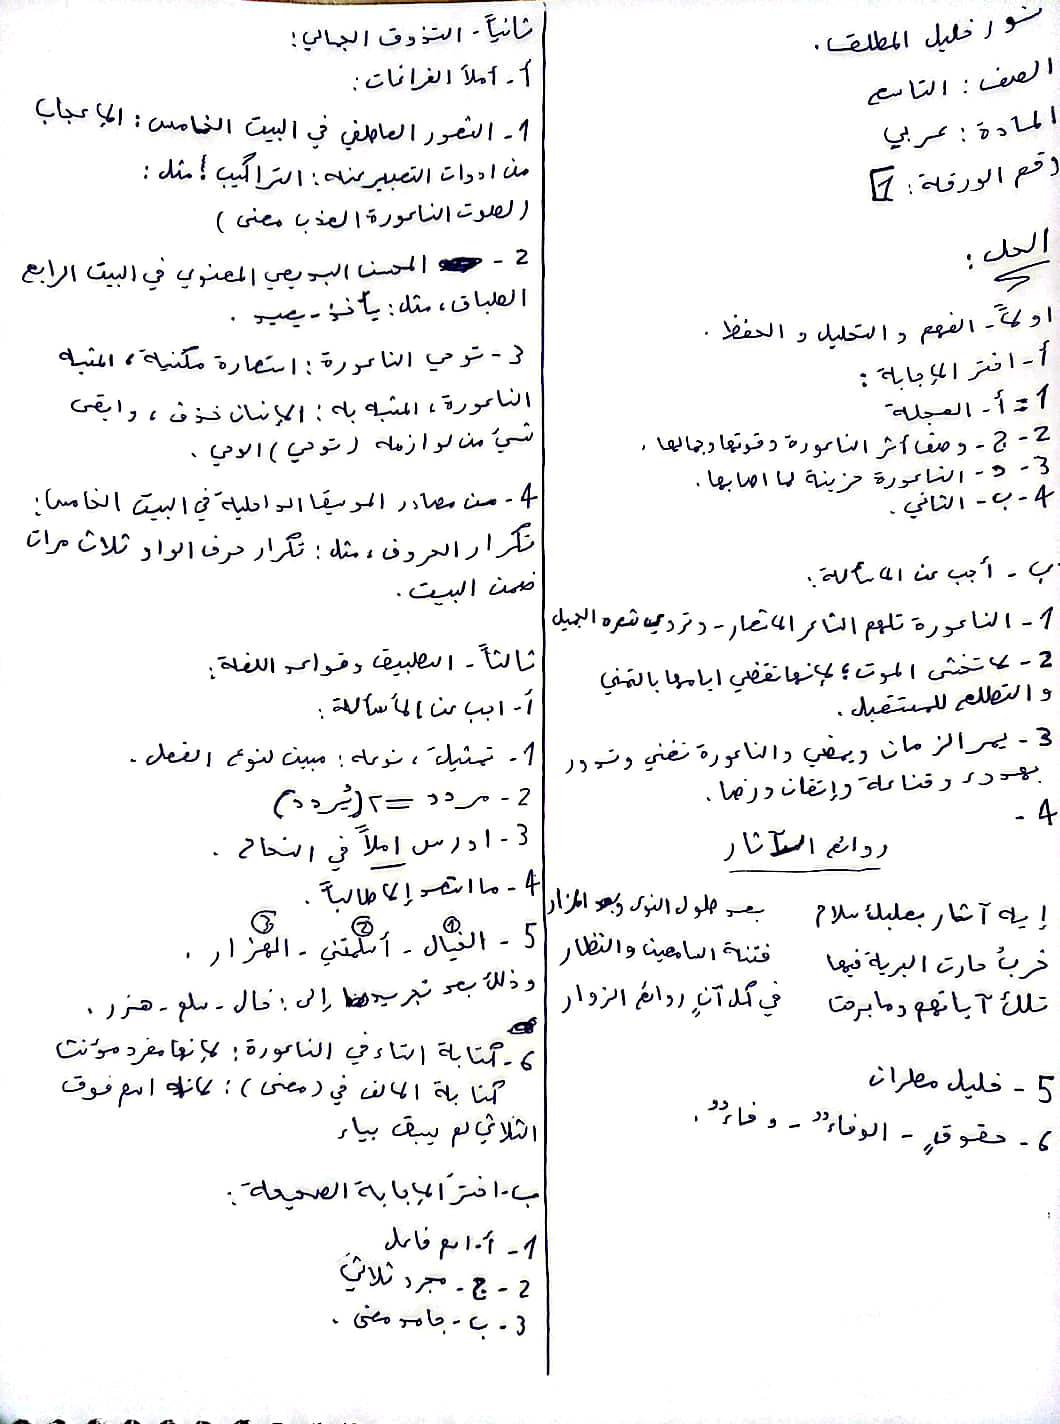 نور خليل المطلق.
الصف: التاسع
المادة: عربي
رقم الورقة: 1
الحل:
اولاً- الفهم و التحليل و الحفظ.
أ- اختر الإجابة:
1 = أ- العجلة
2- ج- وصف أثر الناعورة وقوتها وجمالها.
3- د- الناعورة حزينة لما اصابها.
4- ب- الثاني.
ب- أجب عن الأسألة:
1- الناعورة تلهم الشاعر الأشعار - وتروي شعره الجميل
2- لا تخشى الموت؛ لإنها تقضي ايامها بالتمني
والتطلع للمستقبل.
3- يمر الزمان ويمضي والناعورة تغني وتدور
بهدوء وقناعة وإتقان ورضا.
4-
روائع الآثار
إيه آثار بعلبك سلام بعد طول النوى وبعد المزار
خربٌ حارت البرية فيها فتنة السامعين والنظار
تلك آياتهم وما برحت في كل آنٍ روائع الزوار
5- خليل مطران
6- حقوقٍ - الوفاءُ - وفاءٌ.
ثانياً- التذوق الجمالي:
أ- أملأ الفراغات:
1- الشعور العاطفي في البيت الخامس: الإعجاب
من ادوات التعبير عنه: التراكيب! مثل:
(صوت الناعورة العذب معنى)
2- المحسن البديعي المعنوي في البيت الرابع
الطباق، مثل: يأخذ - يعيد.
3- توحي الناعورة: استعارة مكنية، المشبه
الناعورة، المشبه به: الإنسان حُذف، وابقى
شيئ من لوازمه (توحي) الوحي.
4- من مصادر الموسيقا الداخلية في البيت الخامس:
تكرار الحروف، مثل: تكرار حرف الواو ثلاث مرات
ضمن البيت.
ثالثاً- التطبيق وقواعد اللغة:
أ- اجب عن الأسألة:
1- تمثيلَ، نوعه: مبين لنوع الفعل.
2- مردد = ٢ (يُردد)
3- ادرس املاً في النجاح.
4- ما انتصر إلا طالباً.
5- الخيال - أسلمتني - الهزار.
1 2 3
وذلك بعد تجريدها إلى: خال - سلم - هزر.
6- كتابة التاء في الناعورة: لإنها مفرد مؤنث
كتابة الالف في (معنى): لأنه اسم فوق
الثلاثي لم يسبق بياء
ب- اختر الإجابة الصحيحة:
1- أ- اسم فاعل
2- ج- مجرد ثلاثي
3- ب- جامد معنى.